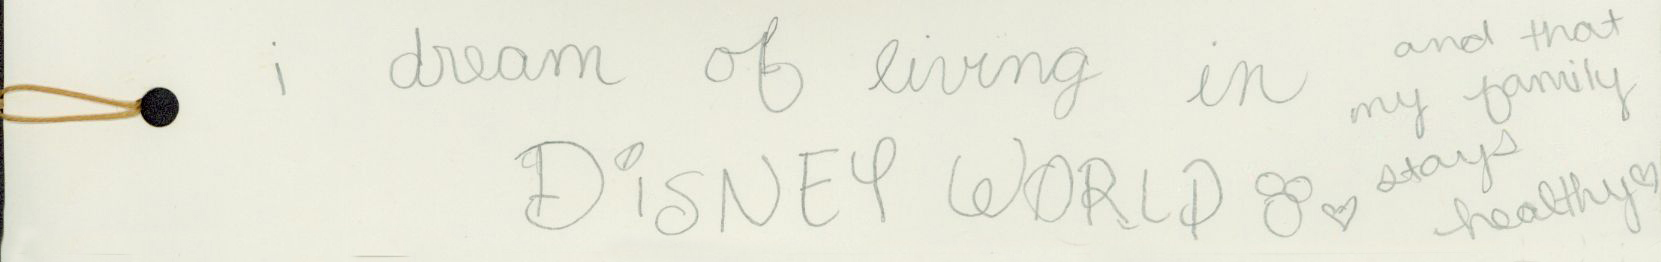 i dream of living in
DiSNEY WORLD
and that
my family
stays
healthy